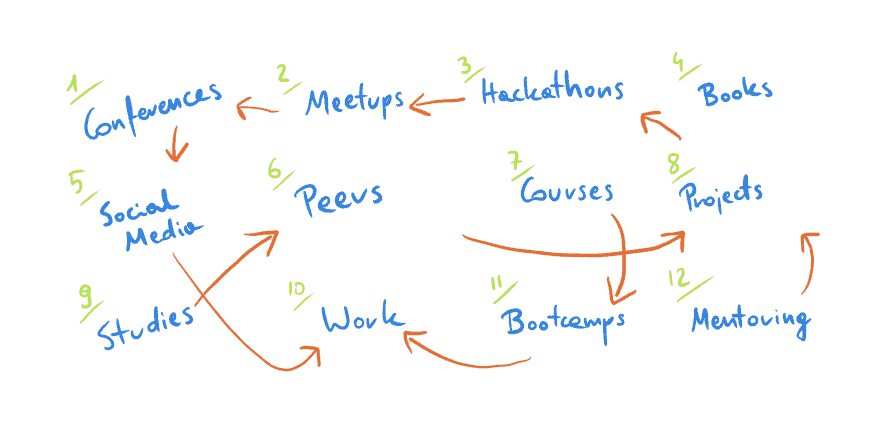 1/ Conferences
2/ Meetups
3/ Hackathons
4/ Books
5/ Social
Media
6/ Peers
7/ Courses
8/ Projects
9/ Studies
10/ Work
11/ Bootcamps
12/ Mentoring